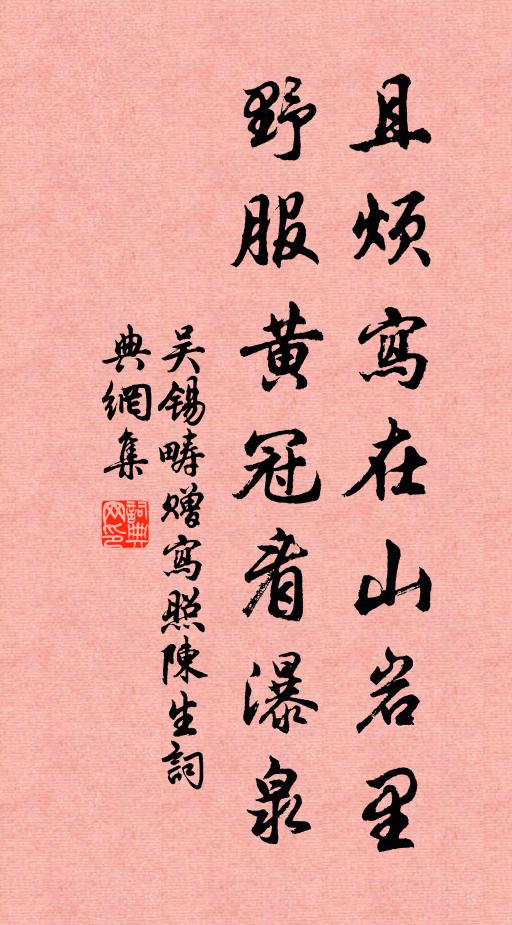 且烦寫在山岩里
野服黄冠看瀑泉
吴锡畴赠寫照陳生詞
典網集
詞典
网印